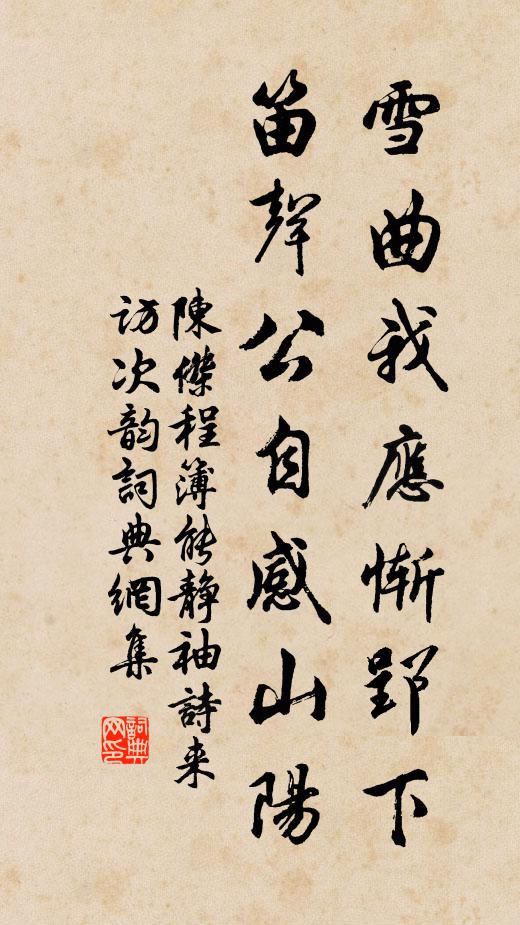 雪曲我應慚郢下
笛聲公自感山陽
陳傑程簿能靜袖詩来
訪次韵詞典網集
詞典
网印